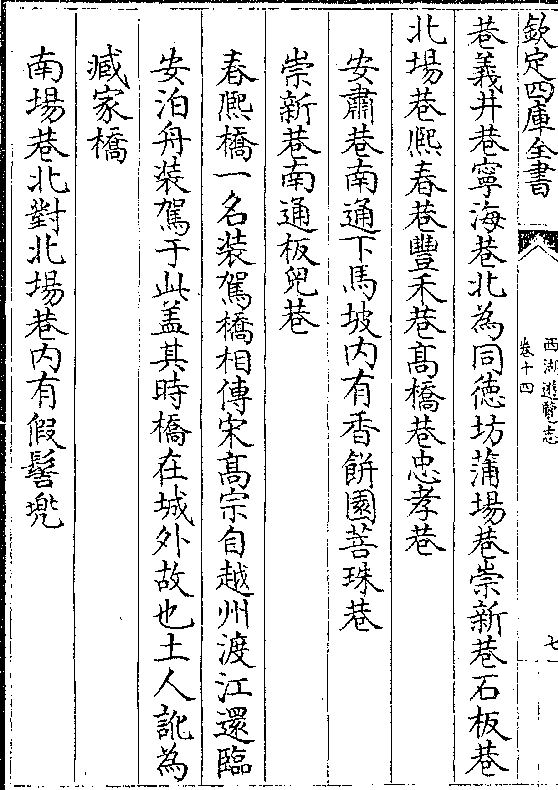 欽定四庫全書
西湖遊覽志
卷十四
七
巷義井巷寧海巷北為同徳坊蒲場巷崇新巷石板巷
北場巷熈春巷豐禾巷髙橋巷忠孝巷
安肅巷南通下馬坡内有香餅園菩珠巷
崇新巷南通板兒巷
春熈橋一名装駕橋相傳宋髙宗自越州渡江還臨
安泊舟装駕于此盖其時橋在城外故也土人訛為
臧家橋
南場巷北對北場巷内有假髻兠